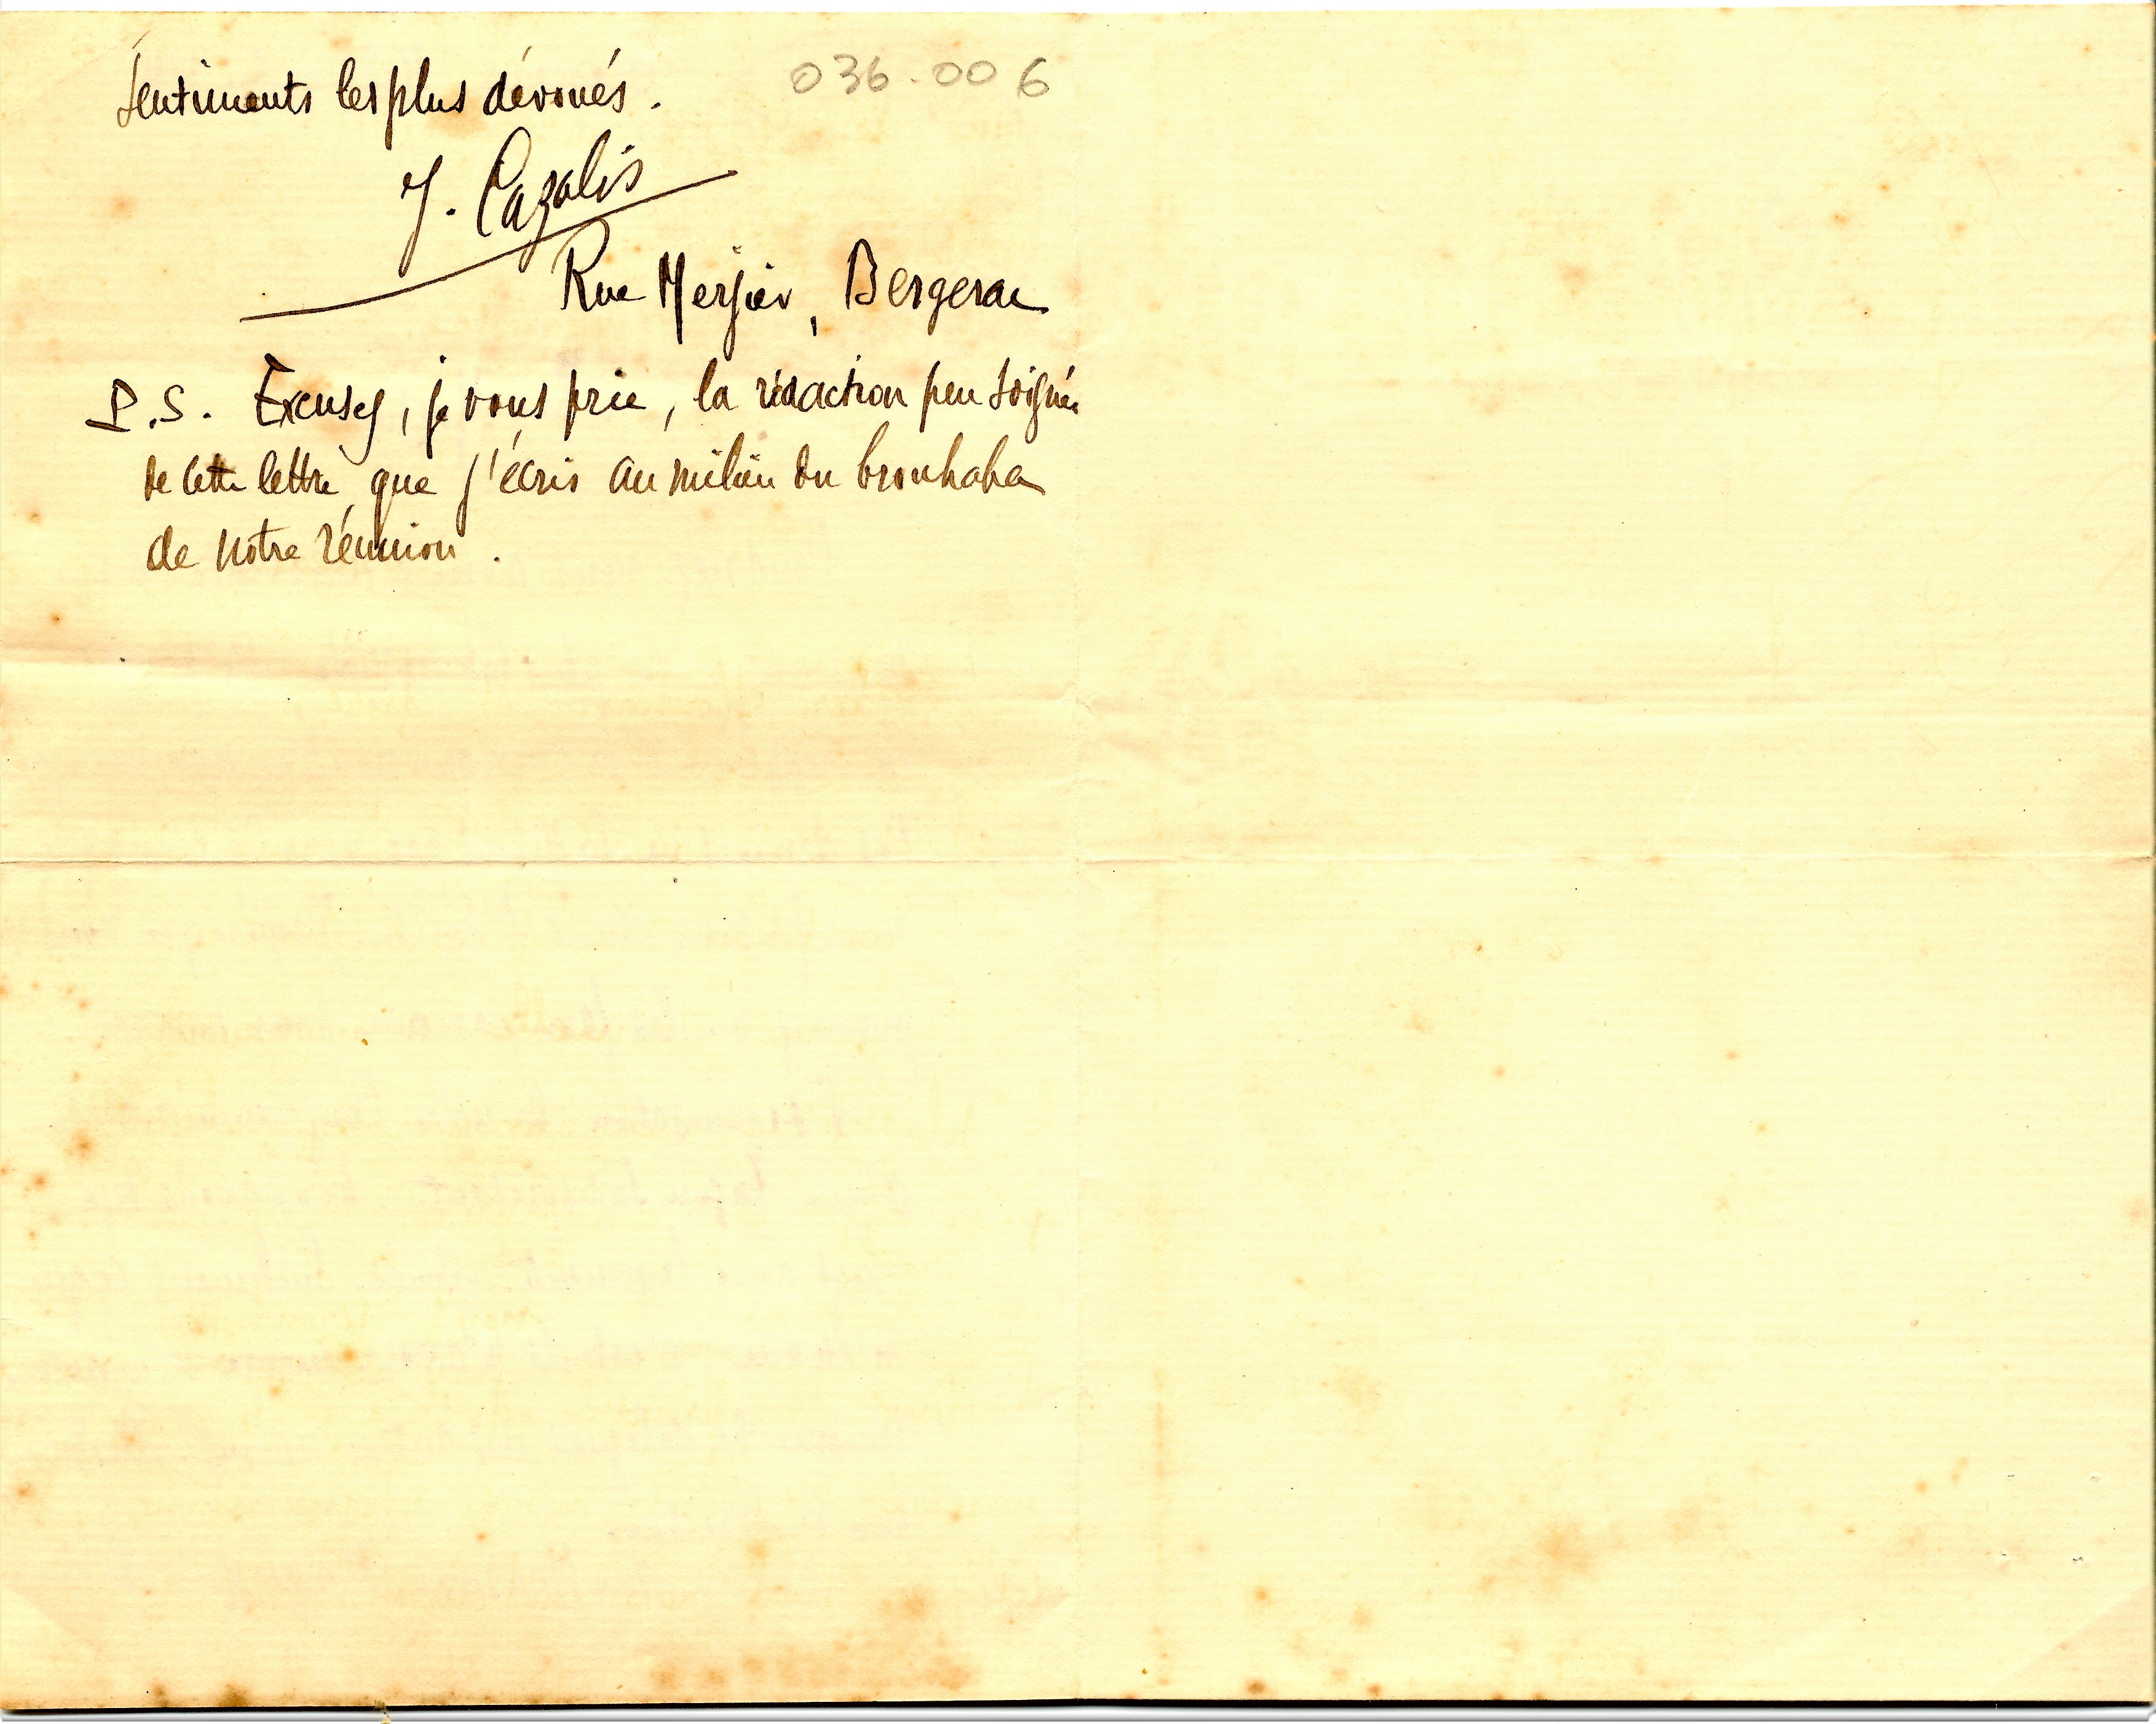 sentiments les plus dévoués.
036.006
J. Cazalis
Rue Mergier, Bergerac
P.S. Excusez, je vous prie, la rédaction peu soignée
de cette lettre que j'écris au milieu du brouhaha
de notre réunion.